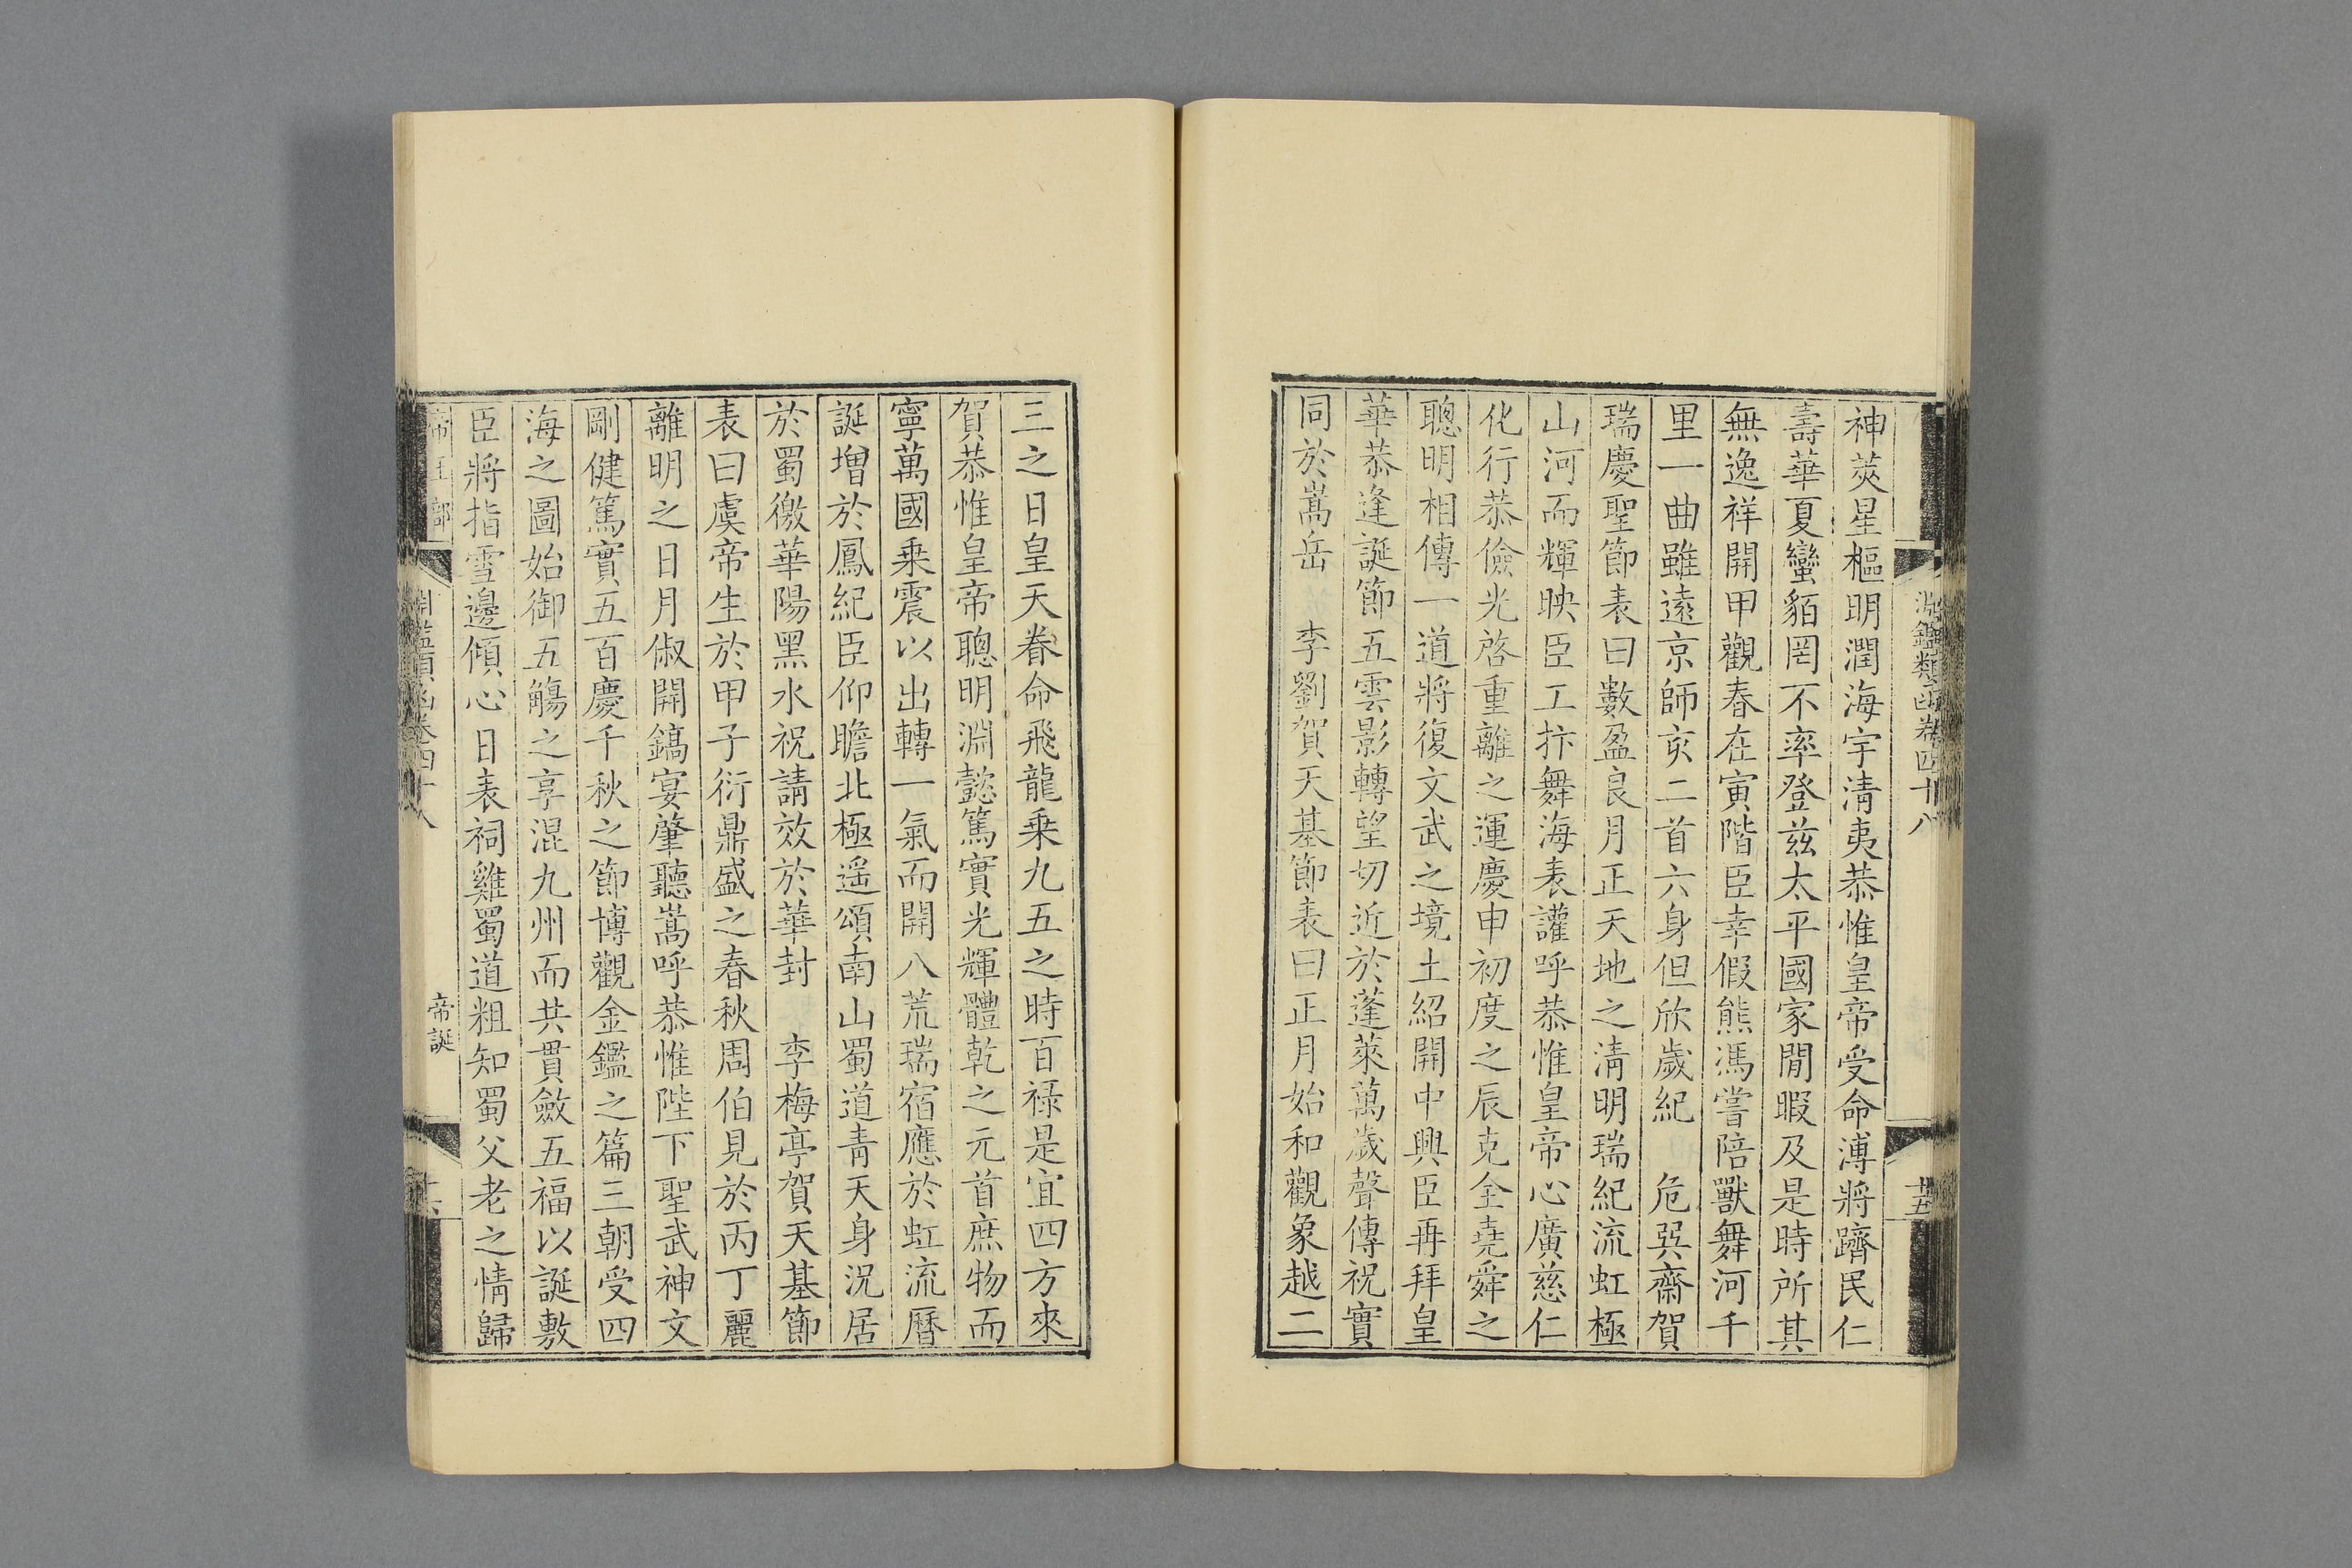 淵鑑類函卷四十八
十五
神莢星樞明潤海宇清夷恭惟皇帝受命溥將躋民仁
壽華夏蠻貊罔不率登茲太平國家閒暇及是時所其
無逸祥開甲觀春在寅階臣幸假熊馮嘗陪獸舞河千
里一曲雖遠京師亥二首六身但欣歲紀　危巽齋賀
瑞慶聖節表曰數盈良月正天地之清明瑞紀流虹極
山河而輝映臣工抃舞海表讙呼恭惟皇帝心廣慈仁
化行恭儉光啓重離之運慶申初度之辰克全堯舜之
聰明相傳一道將復文武之境土紹開中興臣再拜皇
華恭逢誕節五雲影轉望切近於蓬萊萬歲聲傳祝實
同於嵩岳　李劉賀天基節表曰正月始和觀象越二
三之日皇天眷命飛龍乗九五之時百祿是宜四方來
賀恭惟皇帝聰明淵懿篤實光輝體乾之元首庶物而
寧萬國乗震以出轉一氣而開八荒瑞宿應於虹流曆
誕增於鳳紀臣仰瞻北極遥頌南山蜀道青天身況居
於蜀徼華陽黑水祝請效於華封　李梅亭賀天基節
表曰虞帝生於甲子衍鼎盛之春秋周伯見於丙丁麗
離明之日月俶開鎬宴肇聽嵩呼恭惟陛下聖武神文
剛健篤實五百慶千秋之節博觀金鑑之篇三朝受四
海之圖始御五觴之享混九州而共貫斂五福以誕敷
臣將指雪邊傾心日表祠雞蜀道粗知蜀父老之情歸
帝王部
淵鑑類函卷四十八
帝誕
十六